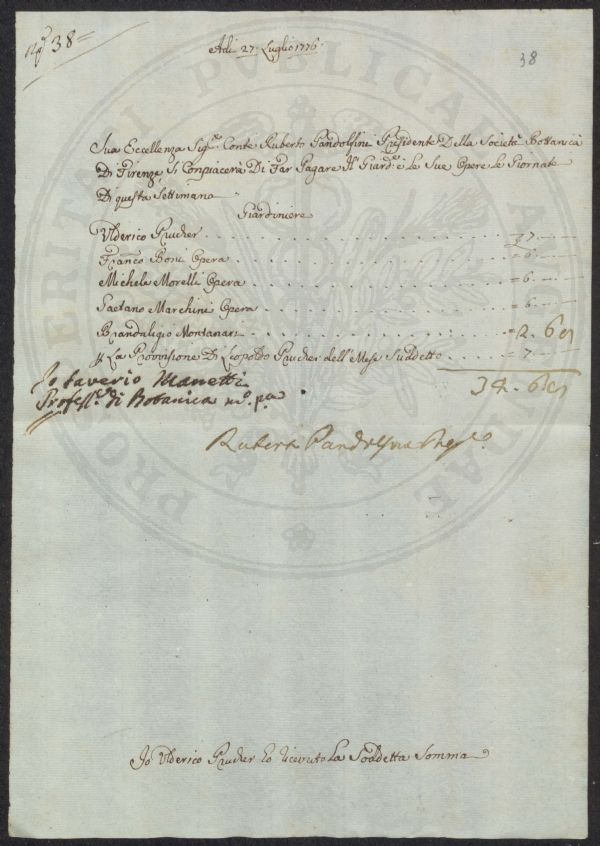 38=
38
Adi 27. Luglio 1776.
Sua Eccellenza Sig.re Conte Ruberto Pandolfini Presidente Della Società Bottanica
Di Firenze, Si Conpiacerà Di Far Pagare Il Giard.e e le Sue Opere le Giornate
Di questa Settimana
Giardiniere
Ulderico Prucher 7
Franco Boni Opera = 6
Michele Morelli Opera = 6
Gaetano Marchini Opera = 6
Brandaligio Montanari = 2. 6
La Provvisione Di Leopoldo Prucher dell Mese Suddetto = 7
34. 6
Io Saverio Manetti
Profess.e di Botanica m.o p.a
Ruberto Pandolfini
Io Ulderico Prucher ho ricevuto La Soddetta Somma
PRO MERITATI PVBLICA